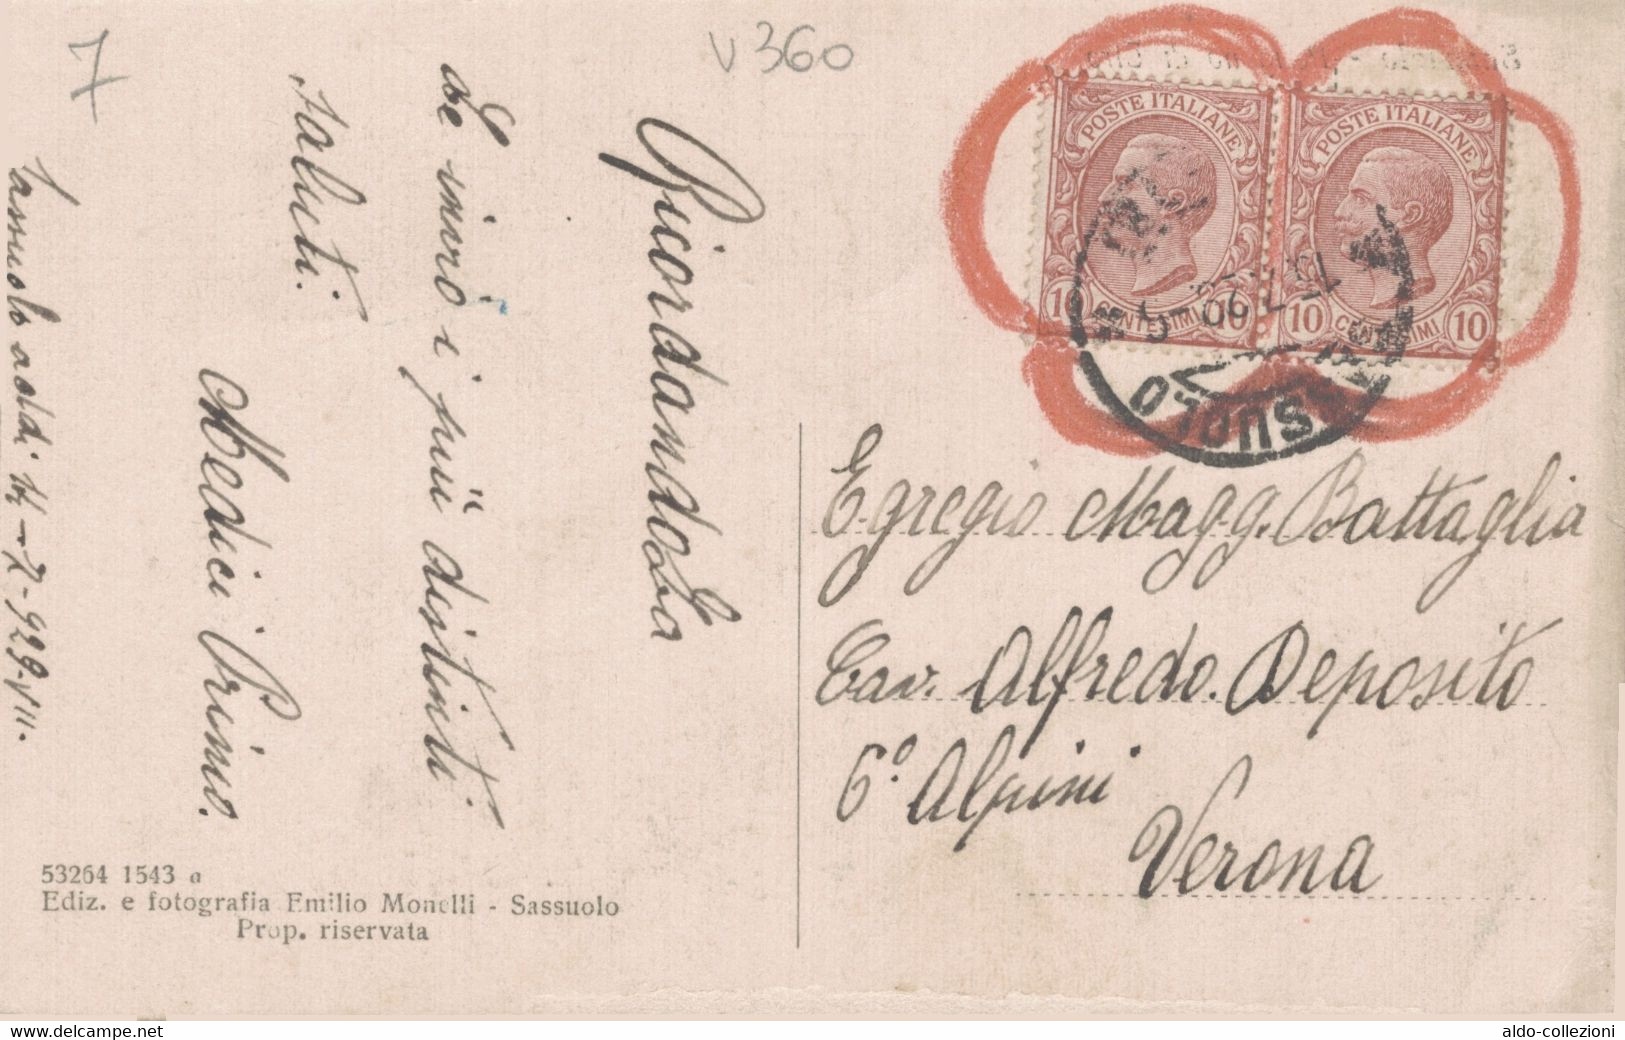 7
V 360
Ricordandola
Le invio i più distinti
saluti.
Medici Primo.
Sassuolo addì 14-7-929-VII.
53264 1543 a
Ediz. e fotografia Emilio Monelli - Sassuolo
Prop. riservata
POSTE ITALIANE
10 CENTESIMI 10
POSTE ITALIANE
10 CENTESIMI 10
SASSUOLO
Egregio Magg. Battaglia
Cav. Alfredo. Deposito
6° Alpini
Verona
www.delcampe.net
aldo-collezioni